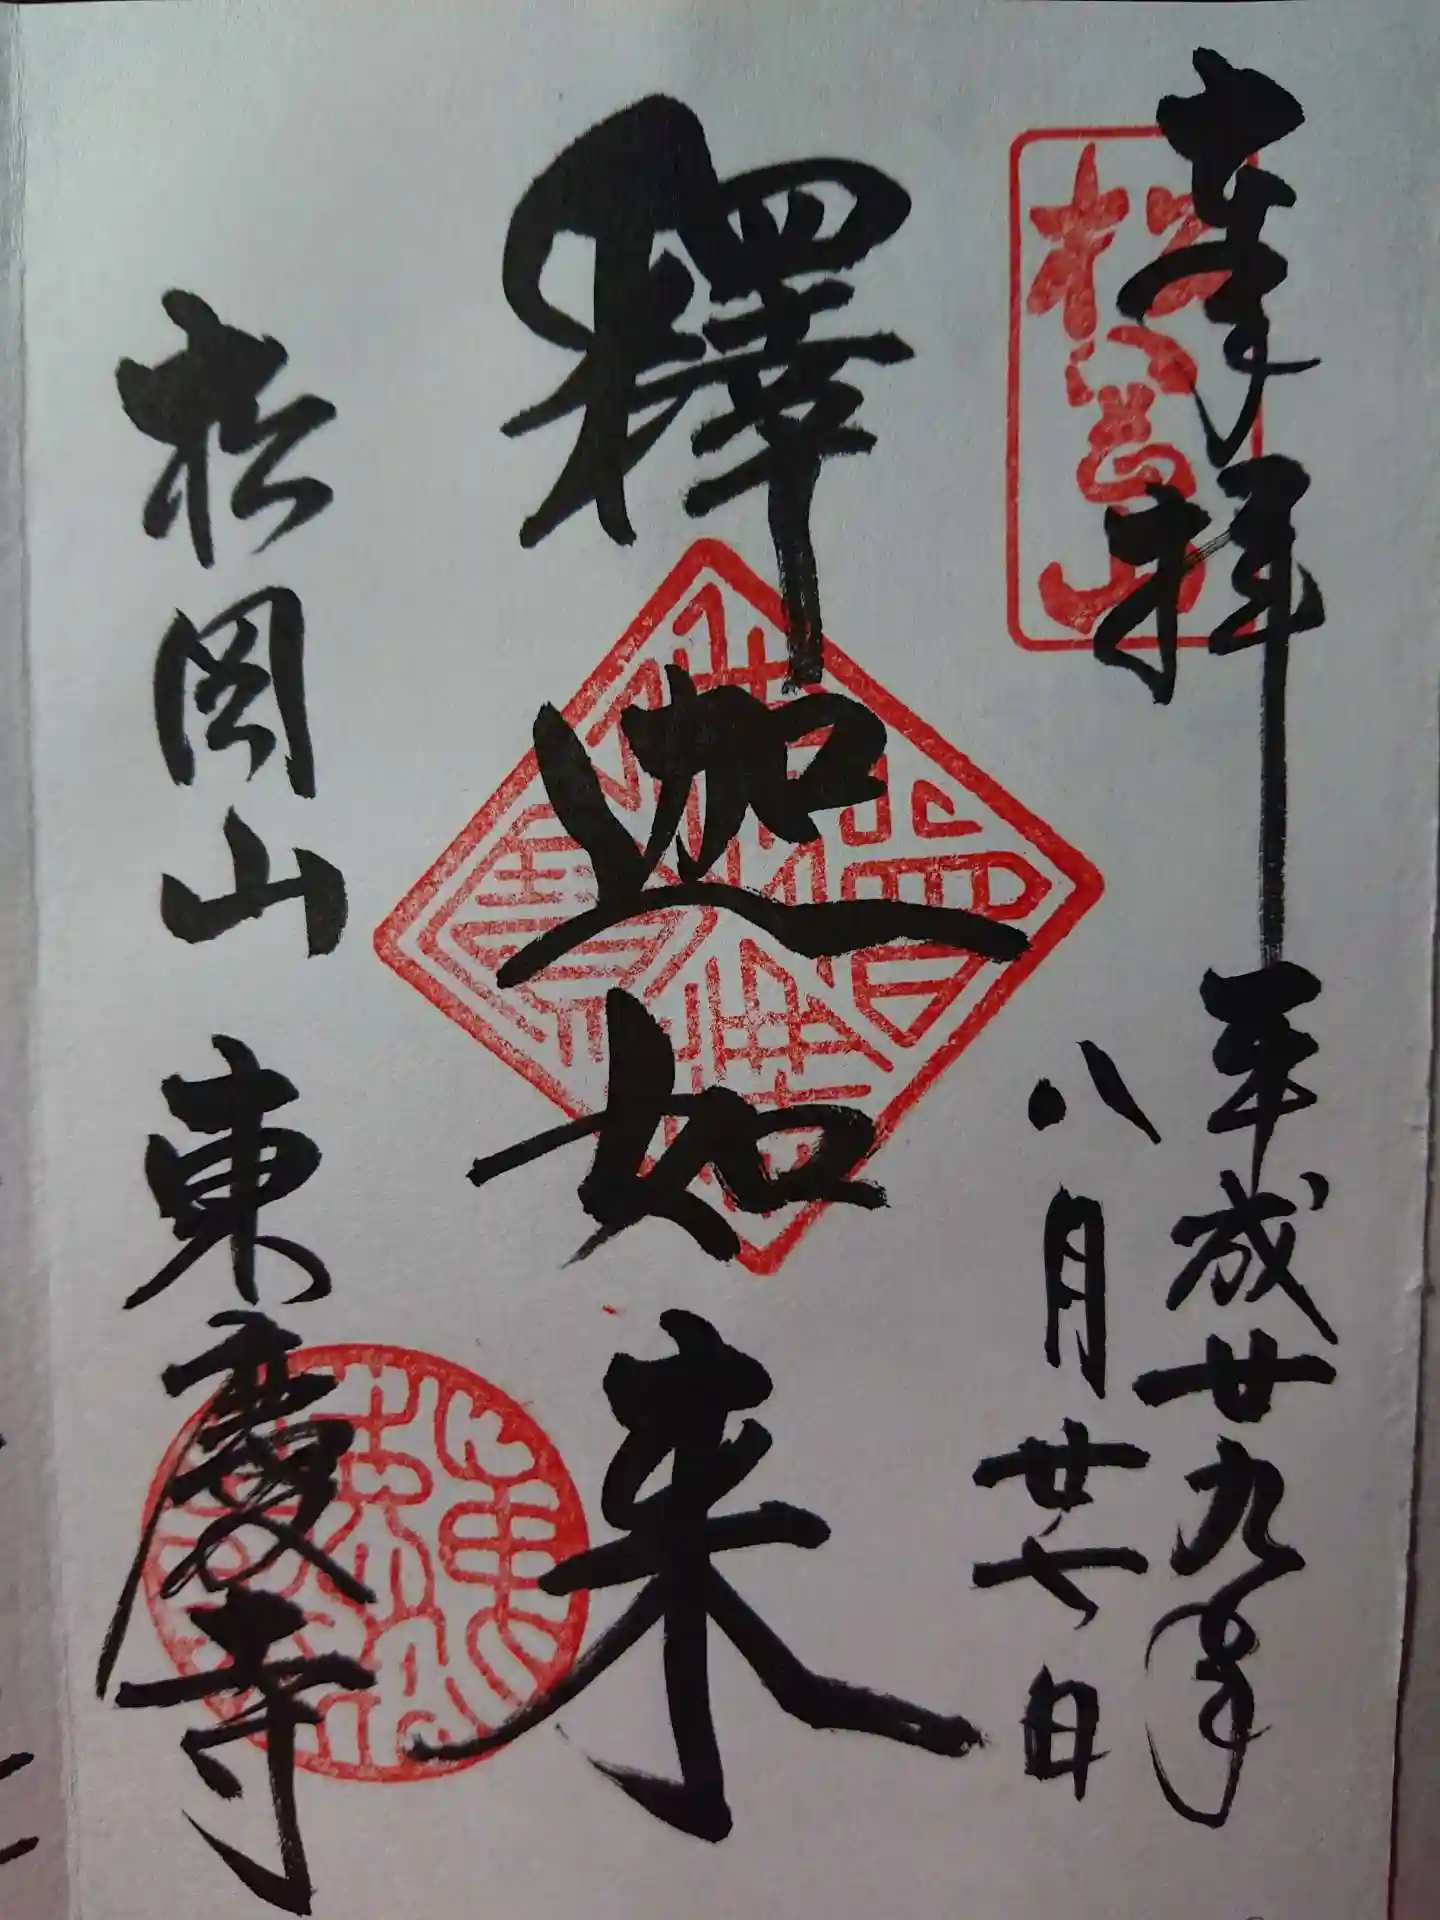 奉拝
平成廿九年
八月廿七日
釋迦如来
松岡山 東慶寺
松岡山